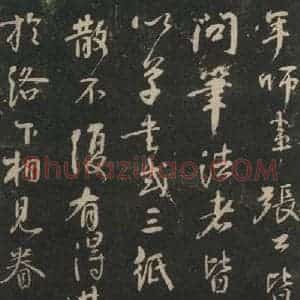 年師事張公皆
問筆法者皆
以草書或三紙
散不復有得其
於洛下相見眷
Shufaziliao.COM